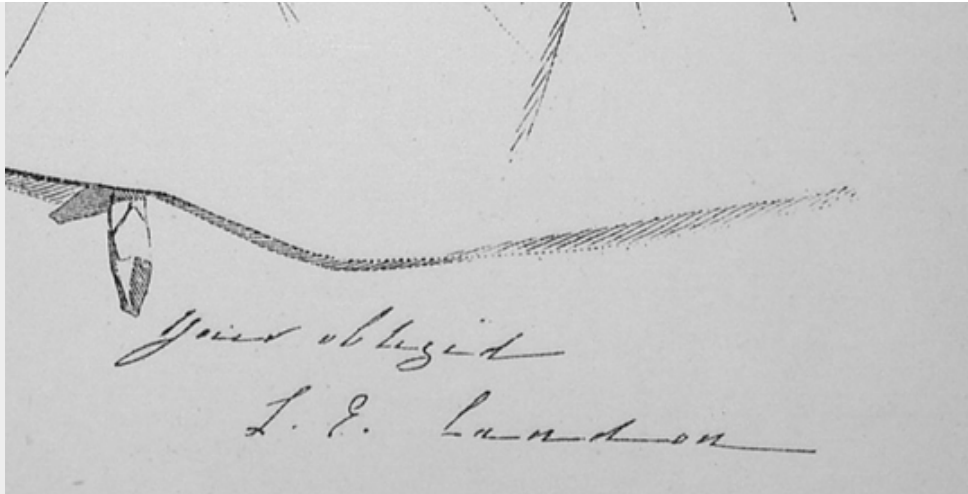 Your obliged
L. E. Landon